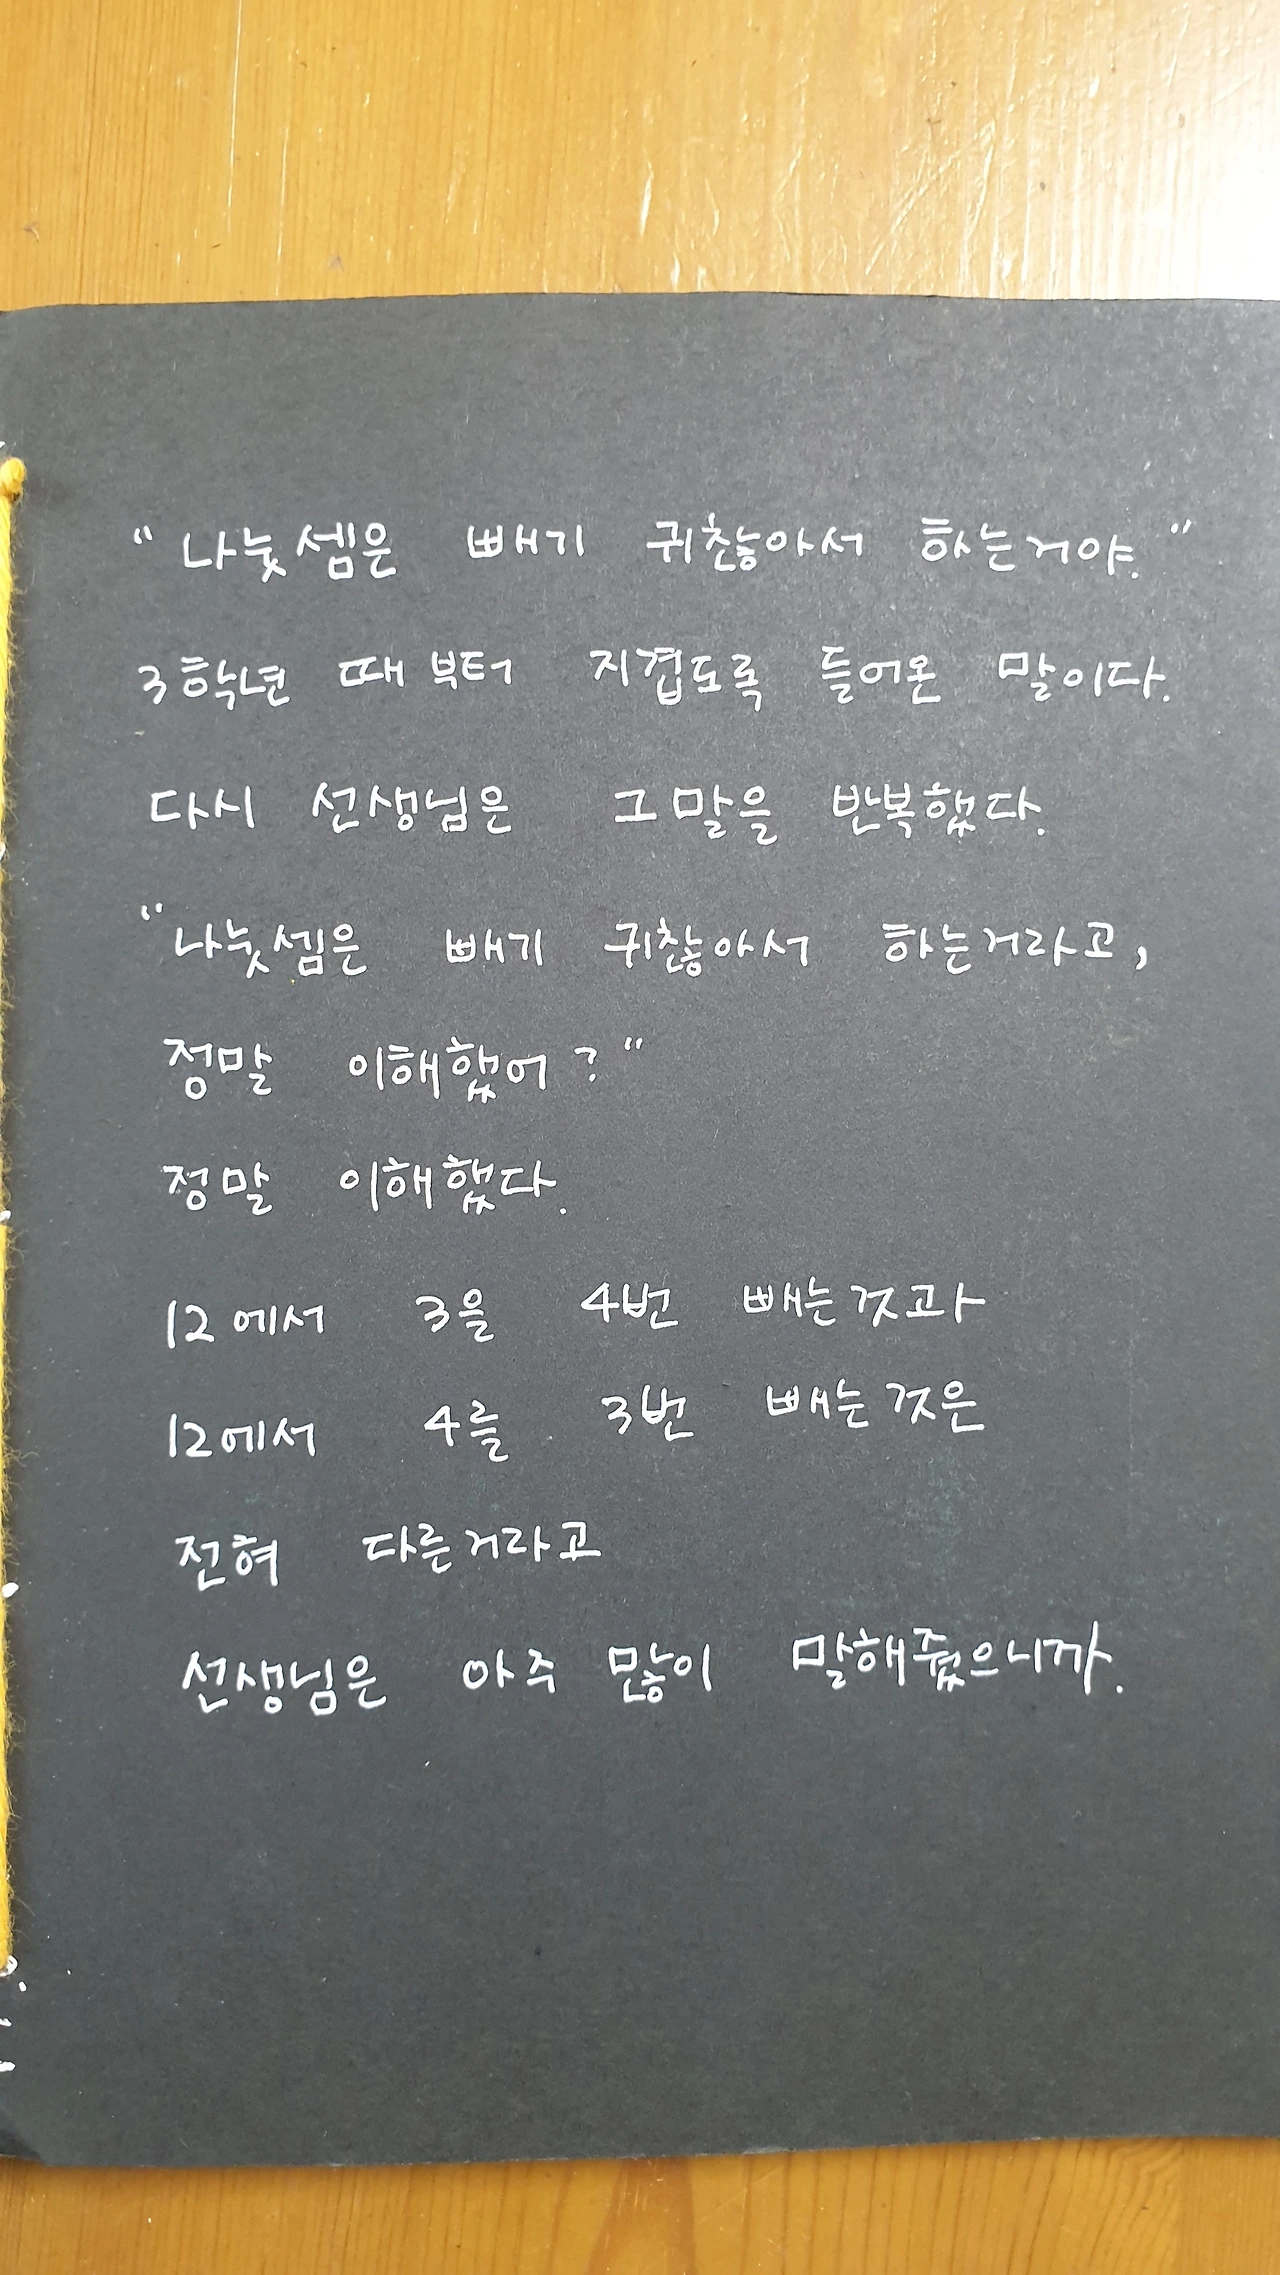 "나눗셈은 빼기 귀찮아서 하는거야."
3학년 때부터 지겹도록 들어온 말이다.
다시 선생님은 그말을 반복했다.
"나눗셈은 빼기 귀찮아서 하는거라고,
정말 이해했어?"
정말 이해했다.
12에서 3을 4번 빼는것과
12에서 4를 3번 빼는것은
전혀 다른거라고
선생님은 아주 많이 말해줬으니까.